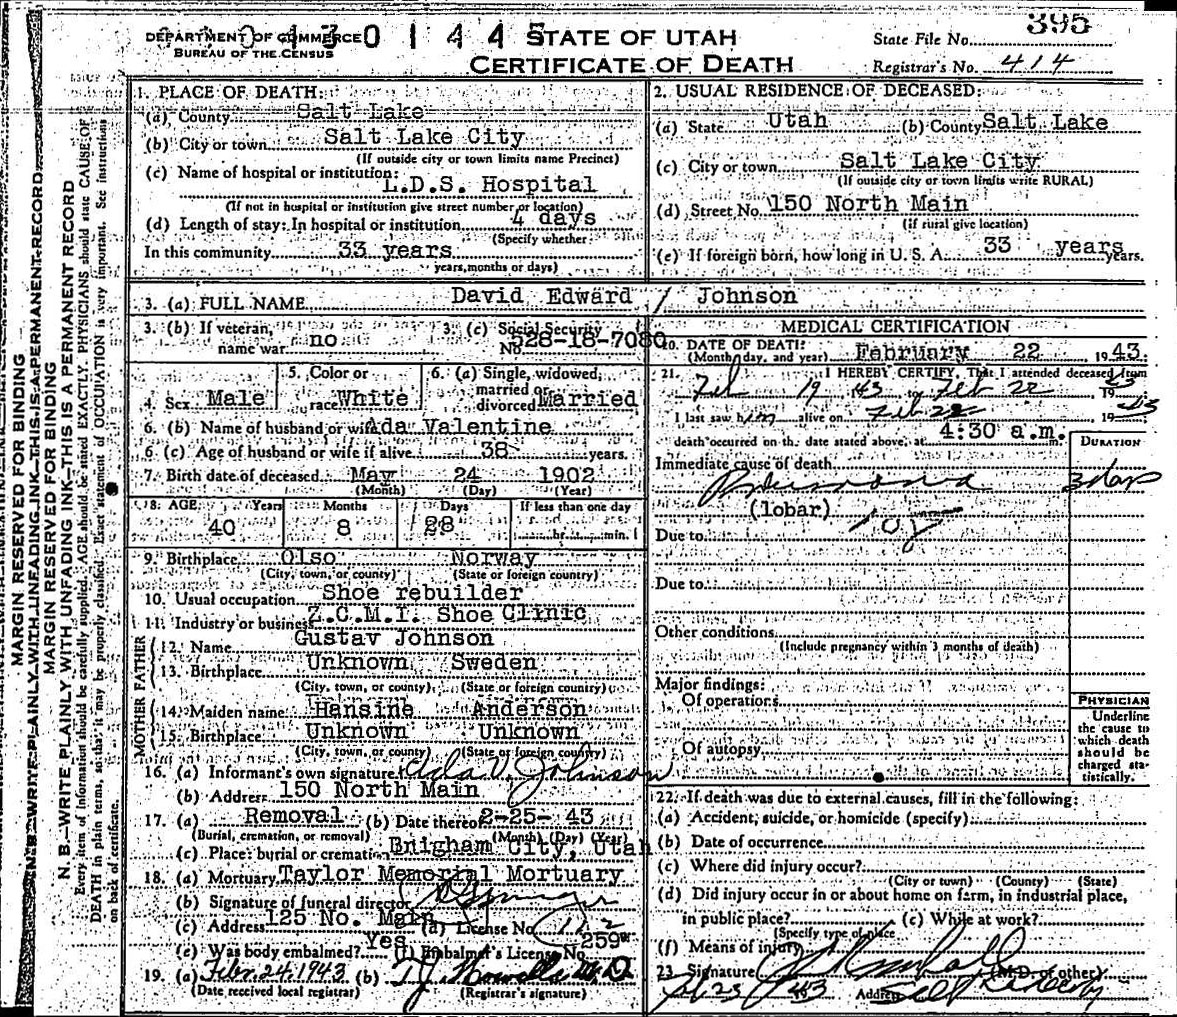 395
DEPARTMENT OF COMMERCE
BUREAU OF THE CENSUS
STATE OF UTAH
CERTIFICATE OF DEATH
State File No.
Registrar's No. 414
1. PLACE OF DEATH:
(a) County Salt Lake
(b) City or town Salt Lake City
(If outside city or town limits name Precinct)
(c) Name of hospital or institution:
L.D.S. Hospital
(If not in hospital or institution give street number or location)
(d) Length of stay: In hospital or institution 4 days
(Specify whether
In this community 33 years
years, months or days)
2. USUAL RESIDENCE OF DECEASED:
(a) State Utah (b) County Salt Lake
(c) City or town Salt Lake City
(If outside city or town limits write RURAL)
(d) Street No. 150 North Main
(if rural give location)
(e) If foreign born, how long in U. S. A. 33 years years.
3. (a) FULL NAME David Edward / Johnson
3. (b) If veteran, name war no
3. (c) Social Security No. 528-18-7080
4. Sex Male
5. Color or race White
6. (a) Single, widowed, married or divorced Married
6. (b) Name of husband or wife Ada Valentine
6. (c) Age of husband or wife if alive 38 years.
7. Birth date of deceased May 24 1902
(Month) (Day) (Year)
8. AGE Years Months Days If less than one day
40 8 28 hr. min.
9. Birthplace Olso Norway
(City, town, or county) (State or foreign country)
10. Usual occupation Shoe rebuilder
11. Industry or business Z.C.M.I. Shoe Clinic
FATHER
12. Name Gustav Johnson
13. Birthplace Unknown Sweden
(City, town, or county) (State or foreign country)
MOTHER
14. Maiden name Hansine Anderson
15. Birthplace Unknown Unknown
(City, town, or county) (State or foreign country)
16. (a) Informant's own signature Ada V. Johnson
(b) Address 150 North Main
17. (a) Removal (b) Date thereof 2-25-43
(Burial, cremation, or removal) (Month) (Day) (Year)
(c) Place: burial or cremation Brigham City, Utah
18. (a) Mortuary Taylor Memorial Mortuary
(b) Signature of funeral director
(c) Address 125 No. Main (d) License No.
(e) Was body embalmed? Yes (f) Embalmer's License No. 259
19. (a) Feb. 24, 1943 (b) T.J. Howells M.D
(Date received local registrar) (Registrar's signature)
MEDICAL CERTIFICATION
20. DATE OF DEATH:
(Month, day, and year) February 22, 1943.
21. I HEREBY CERTIFY, That I attended deceased from
Feb 19 43 to Feb 22 19 43
I last saw him alive on Feb 22 19 43
death occurred on the date stated above, at 4:30 a.m.
DURATION
Immediate cause of death
Pneumonia 3 days
(lobar)
Due to
Due to
Other conditions
(Include pregnancy within 3 months of death)
Major findings:
Of operations
Of autopsy
PHYSICIAN
Underline
the cause to
which death
should be
charged sta-
tistically.
22. If death was due to external causes, fill in the following:
(a) Accident, suicide, or homicide (specify)
(b) Date of occurrence
(c) Where did injury occur?
(City or town) (County) (State)
(d) Did injury occur in or about home on farm, in industrial place,
in public place? (e) While at work?
(Specify type of place
(f) Means of injury
23. Signature (M.D. or other)
Address
MARGIN RESERVED FOR BINDING
N. B.—WRITE PLAINLY WITH UNFADING INK—THIS IS A PERMANENT RECORD
MARGIN RESERVED FOR BINDING
N. B.—WRITE PLAINLY WITH UNFADING INK—THIS IS A PERMANENT RECORD
Every item of information should be carefully supplied. AGE should be stated EXACTLY. PHYSICIANS should state CAUSE OF
DEATH in plain terms, so that it may be properly classified. Exact statement of OCCUPATION is very important. See instructions
on back of certificate.